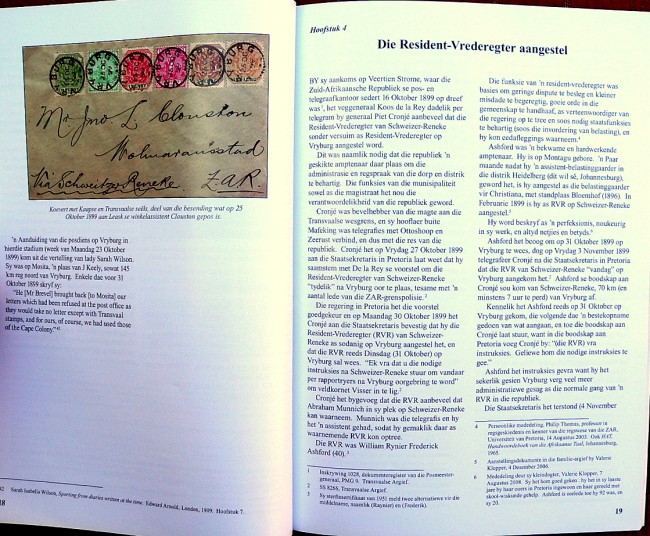 BURG
Mr Jno L Clouston
Molmaransstad
Via Schweitzer Reneke
Z.A.R.
Koevert met Kaapse en Transvaalse seëls, deel van die besending wat op 25
Oktober 1899 aan Leask se winkelassistent Clouston gepos is.
'n Aanduiding van die posdiens op Vryburg in
hierdie stadium (week van Maandag 23 Oktober
1899) kom uit die vertelling van lady Sarah Wilson.
Sy was op Mosita, 'n plaas van J Keely, sowat 145
km reg noord van Vryburg. Enkele dae voor 31
Oktober 1899 skryf sy:
"He [Mr Brevel] brought back [to Mosita] our
letters which had been refused at the post office as
they would take no letter except with Transvaal
stamps, and for ours, of course, we had used those
of the Cape Colony."
Sarah Isabella Wilson, Sporting from diaries written at the time. Edward Arnold, London, 1909. Hoofstuk 7.
Hoofstuk 4
Die Resident-Vrederegter aangestel
BY sy aankoms op Veertien Strome, waar die
Zuid-Afrikaansche Republiek se pos- en
telegraafkantoor sedert 16 Oktober 1899 op dreef
was, het veggeneraal Koos de la Rey dadelik per
telegram by generaal Piet Cronjé aanbeveel dat die
Resident-Vrederegter van Schweizer-Reneke
sonder versuim as Resident-Vrederegter op
Vryburg aangestel word.
Dit was naamlik nodig dat die republiek 'n
geskikte amptenaar daar plaas om die
administrasie en regspraak van die dorp en distrik
te behartig. Die funksies van die munisipaliteit
sowel as die magistraat het nou die
verantwoordelikheid van die republiek geword.
Cronjé was bevelhebber van die magte aan die
Transvaalse wesgrens, en sy hooflaer buite
Mafeking was telegrafies met Ottoshoop en
Zeerust verbind, en dus met die res van die
republiek. Cronjé het op Vrydag 27 Oktober 1899
aan die Staatsekretaris in Pretoria laat weet dat hy
saamstem met De la Rey se voorstel om die
Resident-Vrederegter van Schweizer-Reneke
"tydelik" na Vryburg oor te plaas, tesame met 'n
aantal lede van die ZAR-grenspolisie.2
Die regering in Pretoria het die voorstel
goedgekeur en op Maandag 30 Oktober 1899 het
Cronjé aan die Staatsekretaris bevestig dat hy die
Resident-Vrederegter (RVR) van Schweizer-
Reneke as sodanig op Vryburg aangestel het, en
dat die RVR reeds Dinsdag (31 Oktober) op
Vryburg sal wees. "Ek vra dat u die nodige
instruksies na Schweizer-Reneke stuur om vandaar
per rapportryers na Vryburg oorgebring te word"
om veldkornet Visser in te lig.2
Cronjé het bygevoeg dat die RVR aanbeveel dat
Abraham Munnich in sy plek op Schweizer-Reneke
kan waarneem. Munnich was die telegrafis en hy
het 'n assistent gehad, sodat hy gemaklik daar as
waarnemende RVR kon optree.
Die RVR was William Rynier Frederick
Ashford (40).3
1 Inskrywing 1028, dokumenteregister van die Posmeester-
generaal, PMG 9. Transvaalse Argief.
2 SS 8268, Transvaalse Argief.
3 Sy sterfinsertifikaat van 1951 meld twee alternatiewe vir die
middelname, naamlik (Raynier) en (Frederik).
Die funksie van 'n resident-vrederegter was
basies om geringe dispute te besleg en kleiner
misdade te beregregtig, goeie orde in die
gemeenskap te handhaaf, as verteenwoordiger van
die regering op te tree en soos nodig staatsfunksies
te behartig (soos die invordering van belasting), en
hy kon eedafleggings waarneem.4
Ashford was 'n bekwame en hardwerkende
amptenaar. Hy is op Montagu gebore. 'n Paar
maande nadat hy 'n assistent-belastinggaarder in
die distrik Heidelberg (dit wil sê, Johannesburg),
geword het, is hy aangestel as die belastinggaarder
vir Christiana, met standplaas Bloemhof (1896). In
Februarie 1899 is hy as RVR op Schweizer-Reneke
aangestel.5
Hy word beskryf as 'n perfeksionis, noukeurig
in sy werk, en altyd netjies en betyds.6
Ashford het beoog om op 31 Oktober 1899 op
Vryburg te wees, dog op Vrydag 3 November 1899
telegrafeer Cronjé na die Staatsekretaris in Pretoria
dat die RVR van Schweizer-Reneke "vandag" op
Vryburg aangekom het.2 Ashford se boodskap aan
Cronjé sou kom van Schweizer-Reneke, 70 km (en
minstens 7 uur te perd) van Vryburg af.
Kennelik het Ashford reeds op 31 Oktober op
Vryburg gekom, die volgende dae 'n bestekopname
gedoen van wat aangaan, en toe die boodskap aan
Cronjé laat stuur, want in die boodskap aan
Pretoria voeg Cronjé by: "(die RVR) vra
instruksies. Geliewe hom die nodige instruksies te
gee."
Ashford het instruksies gevra want hy het
sekerlik gesien Vryburg verg veel meer
administratiewe gesag as die normale gang van 'n
RVR in die republiek.
Die Staatsekretaris het terstond (4 November
4 Persoonlike mededeling, Philip Thomas, professor in
regsgeskiedenis en kenner van die regswese van die ZAR,
Universiteit van Pretoria, 14 Augustus 2003. Ook HAT,
Handwoordeboek van die Afrikaanse Taal, Johannesburg,
1965.
5 Aanstellingsdokumente in die familie-argief by Valerie
Klopper, 4 Desember 2006.
6 Mededeling deur sy kleindogter, Valerie Klopper, 7
Augustus 2008. Sy het hom goed geken: hy het in sy laaste
jare by haar ouers in Pretoria ingewoon en haar gereeld met
skool-wiskunde gehelp. Ashford is oorlede toe hy 92 was, en
sy 20.
19